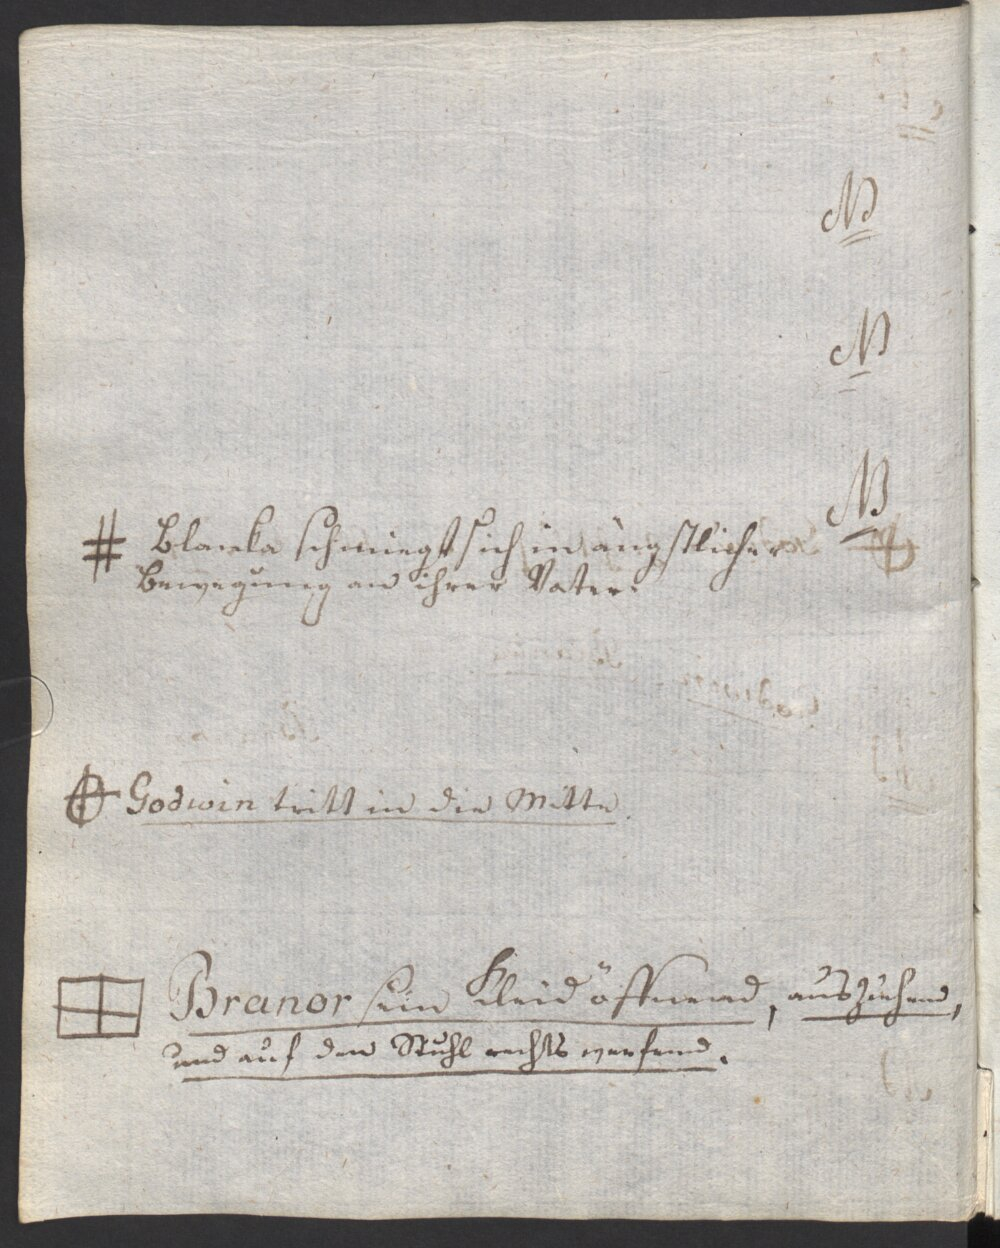 NB
NB
NB
# Blanka schmiegt sich in ängstlicher
Bewegung an ihren Vater.
Godwin tritt in die Mitte.
Branor sein Kleid öffnend, ausziehend,
und auf den Stuhl rechts werfend.